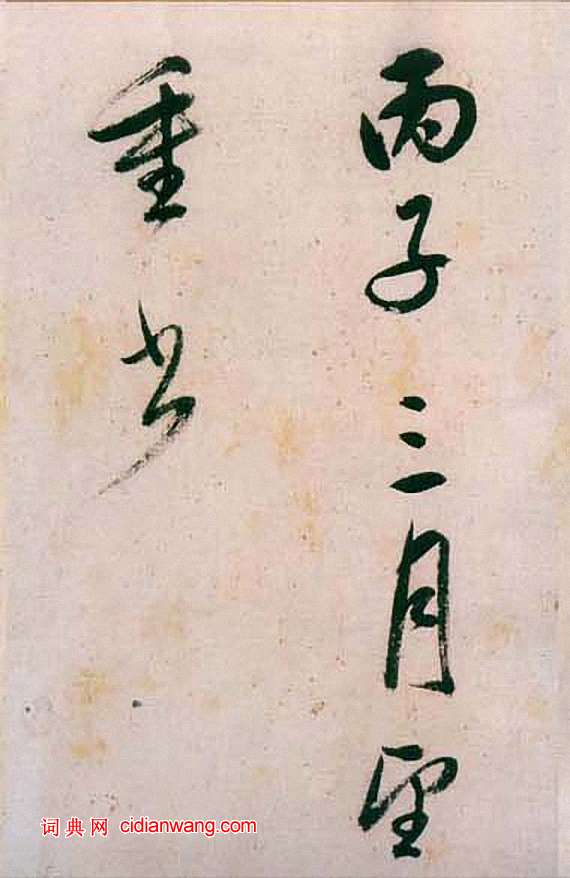 丙子三月望
重書
词典网 cidianwang.com